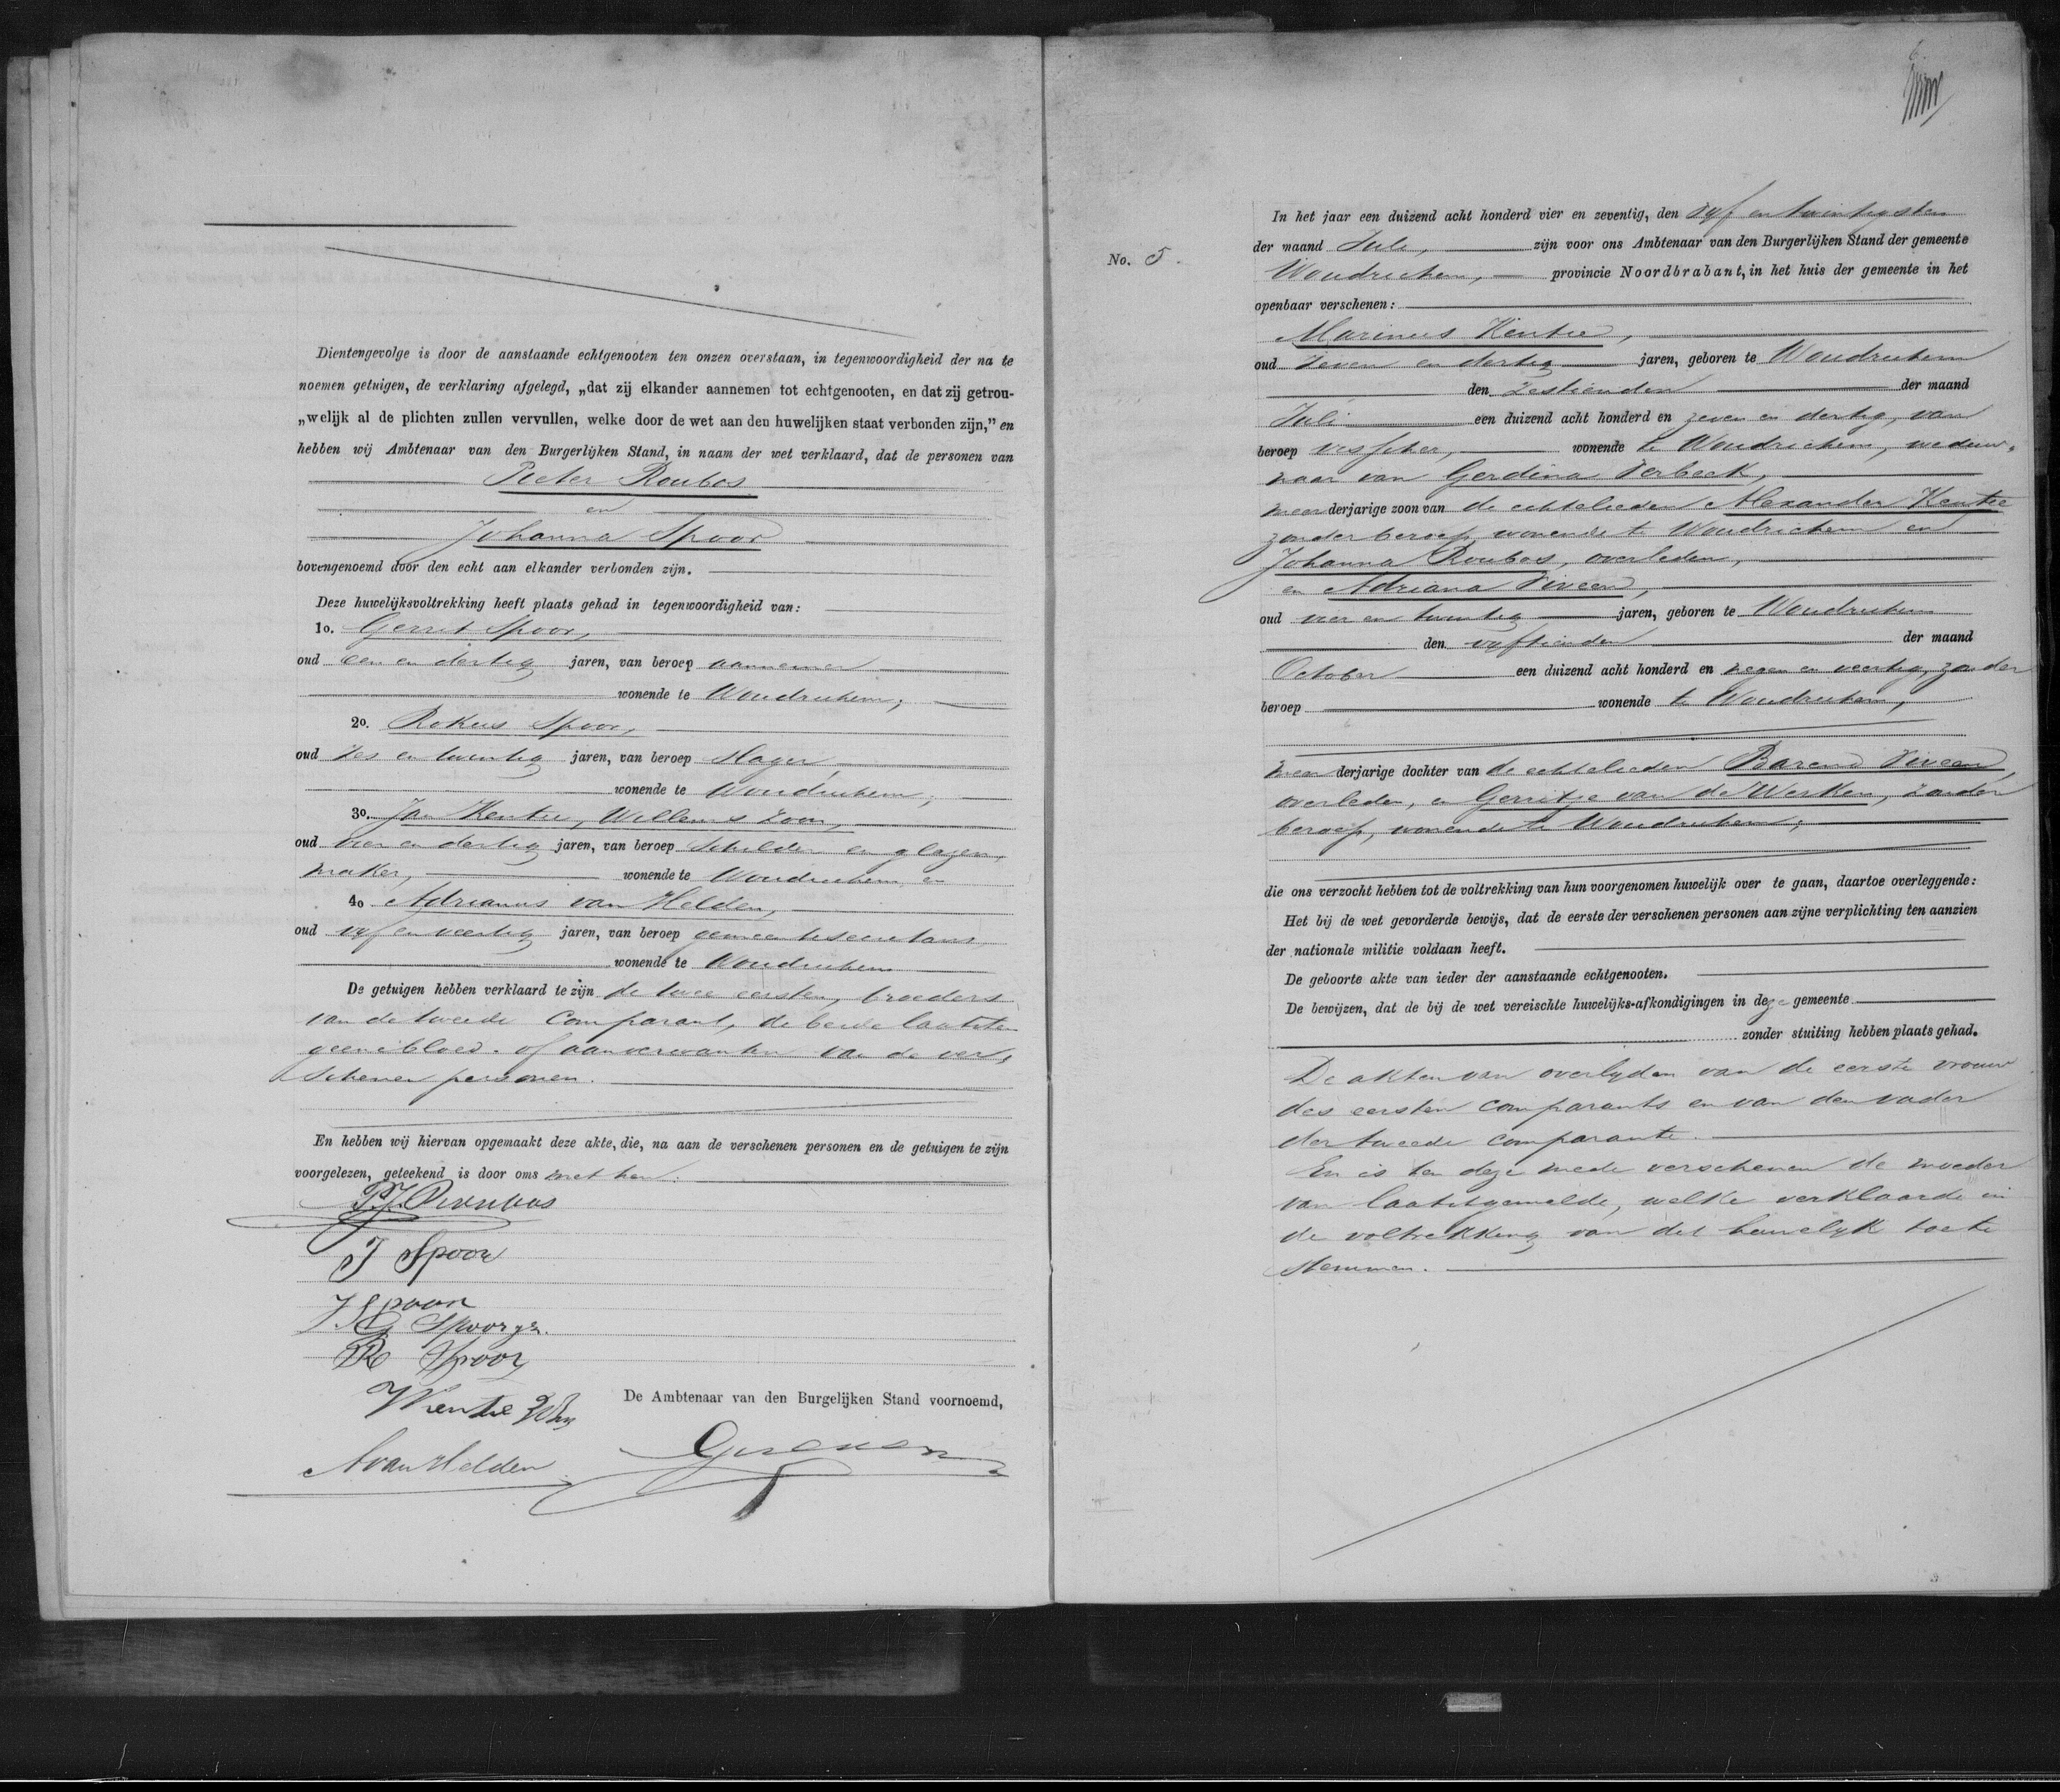 Dientengevolge is door de aanstaande echtgenooten ten onzen overstaan, in tegenwoordigheid der na te
noemen getuigen, de verklaring afgelegd, „dat zij elkander aannemen tot echtgenooten, en dat zij getrou-
„welijk al de plichten zullen vervullen, welke door de wet aan den huwelijken staat verbonden zijn,” en
hebben wij Ambtenaar van den Burgerlijken Stand, in naam der wet verklaard, dat de personen van
Pieter Roubos
en
Johanna Spoor
bovengenoemd door den echt aan elkander verbonden zijn.
Deze huwelijksvoltrekking heeft plaats gehad in tegenwoordigheid van:
1o. Gerrit Spoor,
oud een en dertig jaren, van beroep aannemer
wonende te Woudrichem;
2o. Rokus Spoor,
oud zes en twintig jaren, van beroep slager,
wonende te Woudrichem;
3o. Jan Kentie, Willems zoon,
oud vier en dertig jaren, van beroep schilder en glazen,
maker, wonende te Woudrichem en
4o Adrianus van Helden,
oud vyf en veertig jaren, van beroep gemeentesecretaris
wonende te Woudrichem
De getuigen hebben verklaard te zijn de twee eersten, broeders
van de tweede comparant, de beide laatsten
geene bloed- of aanverwanten van de ver,
schenen personen.
En hebben wij hiervan opgemaakt deze akte, die, na aan de verschenen personen en de getuigen te zijn
voorgelezen, geteekend is door ons met hen.
P.J. Roubos
J Spoor
J Spoor
G Spoor gz.
R Spoor
J Kentie Wz
De Ambtenaar van den Burgelijken Stand voornoemd,
A van Helden
No. 5.
In het jaar een duizend acht honderd vier en zeventig, den vyf en twintigsten
der maand Juli, zijn voor ons Ambtenaar van den Burgerlijken Stand der gemeente
Woudrichem, provincie Noordbrabant, in het huis der gemeente in het
openbaar verschenen:
Marinus Kentie,
oud zeven en dertig jaren, geboren te Woudrichem
den zestienden der maand
Juli een duizend acht honderd en zeven en dertig, van
beroep visscher, wonende te Woudrichem, weduw-
naar van Gerdina Verbeek,
meerderjarige zoon van de echtelieden Alexander Kentie
zonder beroep wonende te Woudrichem en
Johanna Roubos, overleden,
en Adriana Viveen,
oud vier en twintig jaren, geboren te Woudrichem
den vyftienden der maand
October een duizend acht honderd en negen en veertig, zonder
beroep wonende te Woudrichem,
meerderjarige dochter van de echtelieden Barend Viveen,
overleden, en Gerritje van de Werken, zonder
beroep, wonende te Woudrichem;
die ons verzocht hebben tot de voltrekking van hun voorgenomen huwelijk over te gaan, daartoe overleggende:
Het bij de wet gevorderde bewijs, dat de eerste der verschenen personen aan zijne verplichting ten aanzien
der nationale militie voldaan heeft.
De geboorte akte van ieder der aanstaande echtgenooten.
De bewijzen, dat de bij de wet vereischte huwelijks-afkondigingen in deze gemeente
zonder stuiting hebben plaats gehad.
De akten van overlyden van de eerste vrouw
des eersten comparants en van den vader
der tweede comparante.
En is ten deze mede verschenen de moeder
van laatstgemelde, welke verklaarde in
de voltrekking van dit huwelyk toe te
stemmen.